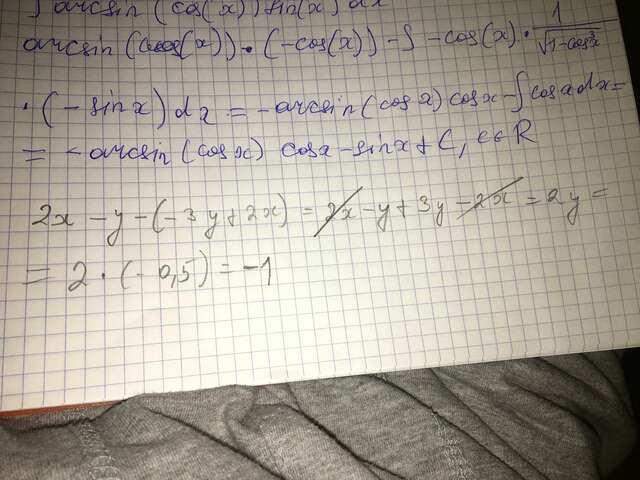 ∫ arcsin (cos(x)) sin(x) dx
arcsin (cos(x)) · (-cos(x)) - ∫ -cos(x) · 1/√(1-cos²x)
· (-sin x) dx = -arcsin (cos x) cos x - ∫ cos x dx =
= -arcsin (cos x) cos x - sin x + C, c∈R
2x - y - (-3y + 2x) = 2x - y + 3y - 2x = 2y =
= 2 · (-0,5) = -1